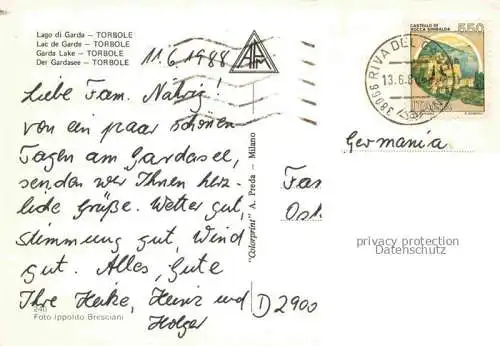 Lago di Garda — TORBOLE
Lac de Garde — TORBOLE
Garda Lake — TORBOLE
Der Gardasee — TORBOLE
11.6.1988
Liebe Fam. Nährig!
von ein paar schönen
Tagen am Gardasee,
senden wir Ihnen herz-
liche Grüße. Wetter gut,
Stimmung gut, Wind
gut. Alles Gute
Ihre Heike, Heinz und
Holger
240
Foto Ippolito Bresciani
"Colorprint" A. Preda — Milano
CASTELLO DI
ROCCA SINIBALDA
550
ITALIA
38066 RIVA DEL
13.6.8
Germania
Fam
Ost
privacy protection
Datenschutz
D 2900